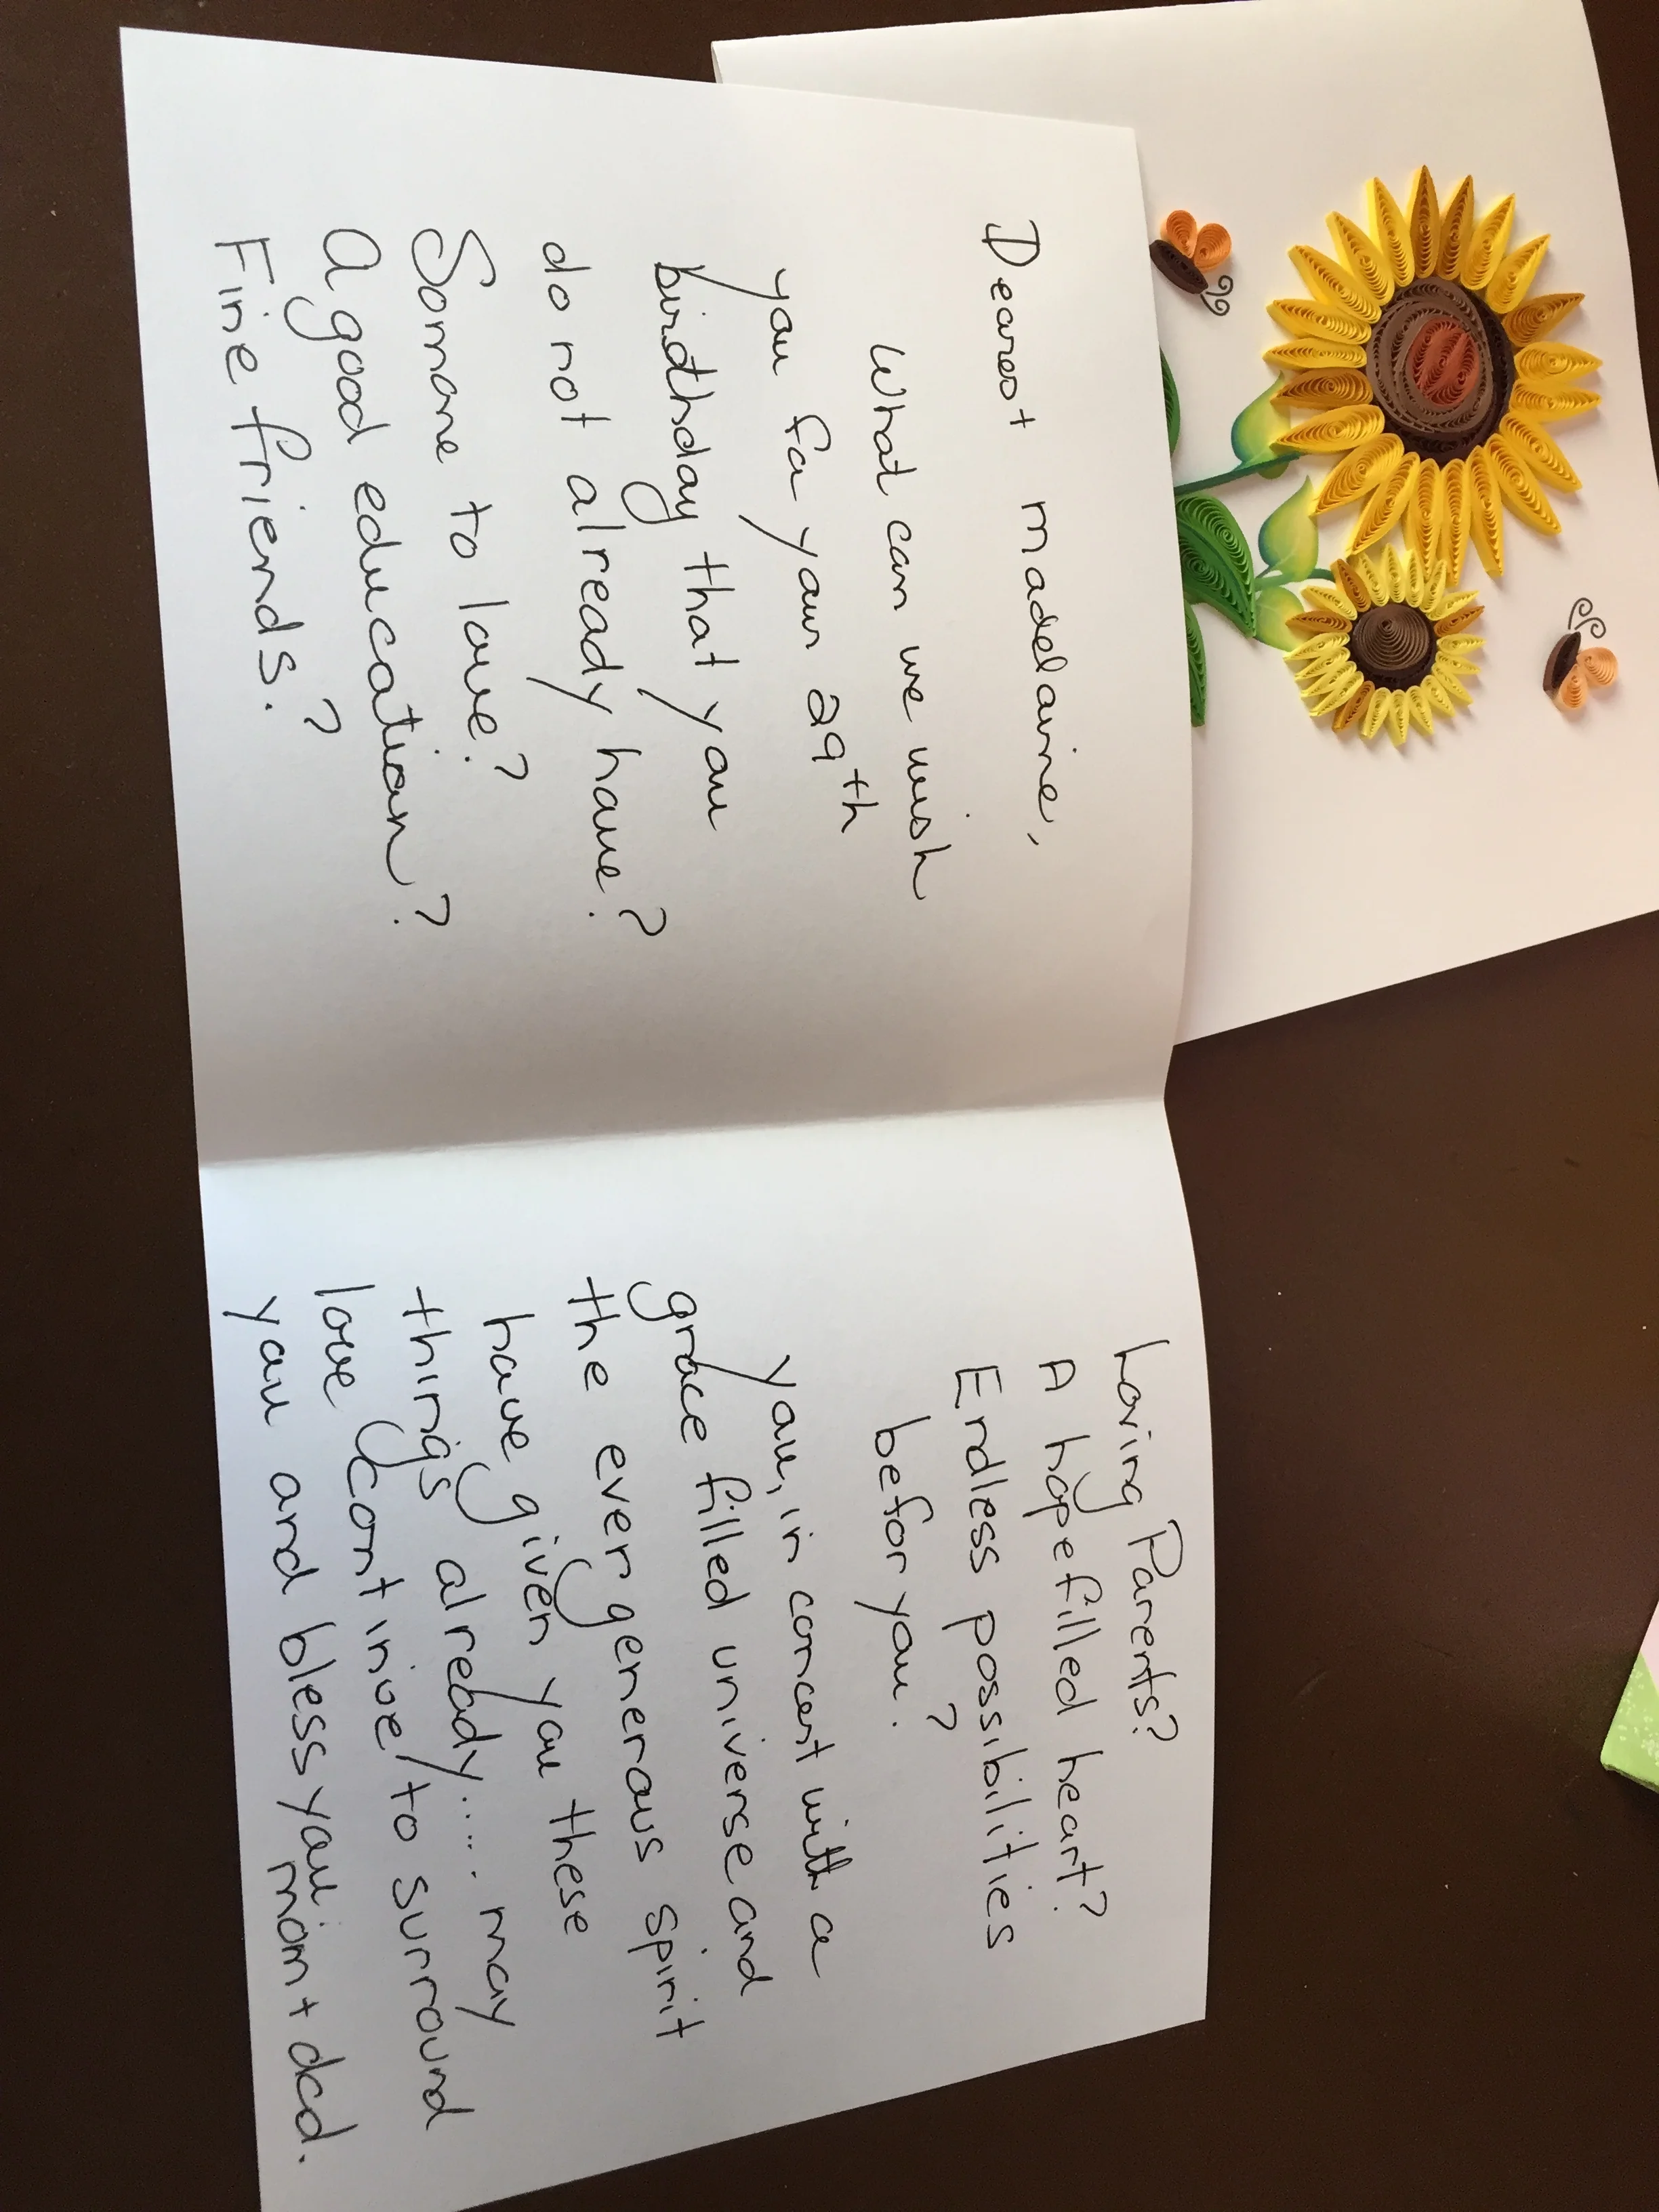 Dearest Madelaine,
What can we wish
you for your 29th
birthday that you
do not already have?
Someone to love?
A good education?
Fine friends?
Loving Parents?
A hope filled heart?
Endless possibilities
before you?
You, in concert with a
grace filled universe and
the ever generous spirit
have given you these
things already.... may
love continue to surround
you and bless you.
mom + dad.